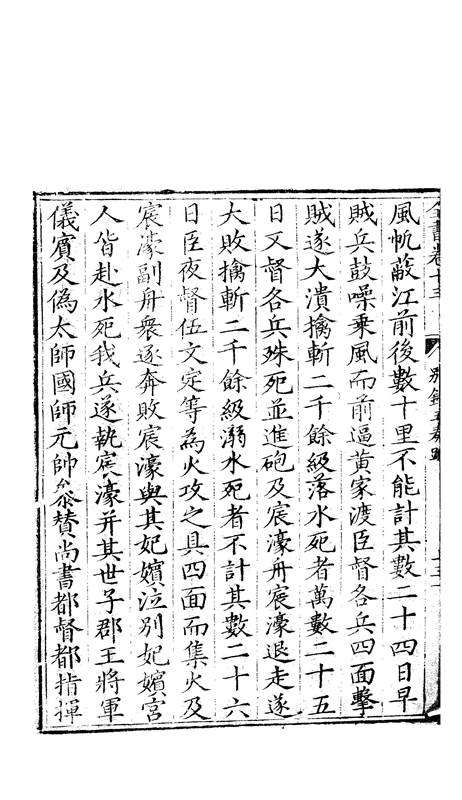 全書卷十三 別錄五奏疏
風帆蔽江前後數十里不能計其數二十四日早
賊兵鼓噪乘風而前逼黃家渡臣督各兵四面擊
賊遂大潰擒斬二千餘級落水死者萬數二十五
日又督各兵殊死並進砲及宸濠舟宸濠退走遂
大敗擒斬二千餘級溺水死者不計其數二十六
日臣夜督伍文定等為火攻之具四面而集火及
宸濠副舟衆遂奔敗宸濠與其妃嬪泣別妃嬪宮
人皆赴水死我兵遂執宸濠并其世子郡王將軍
儀賓及偽太師國師元帥叅贊尚書都督都指揮